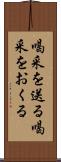 喝采を送る喝
采をおくる